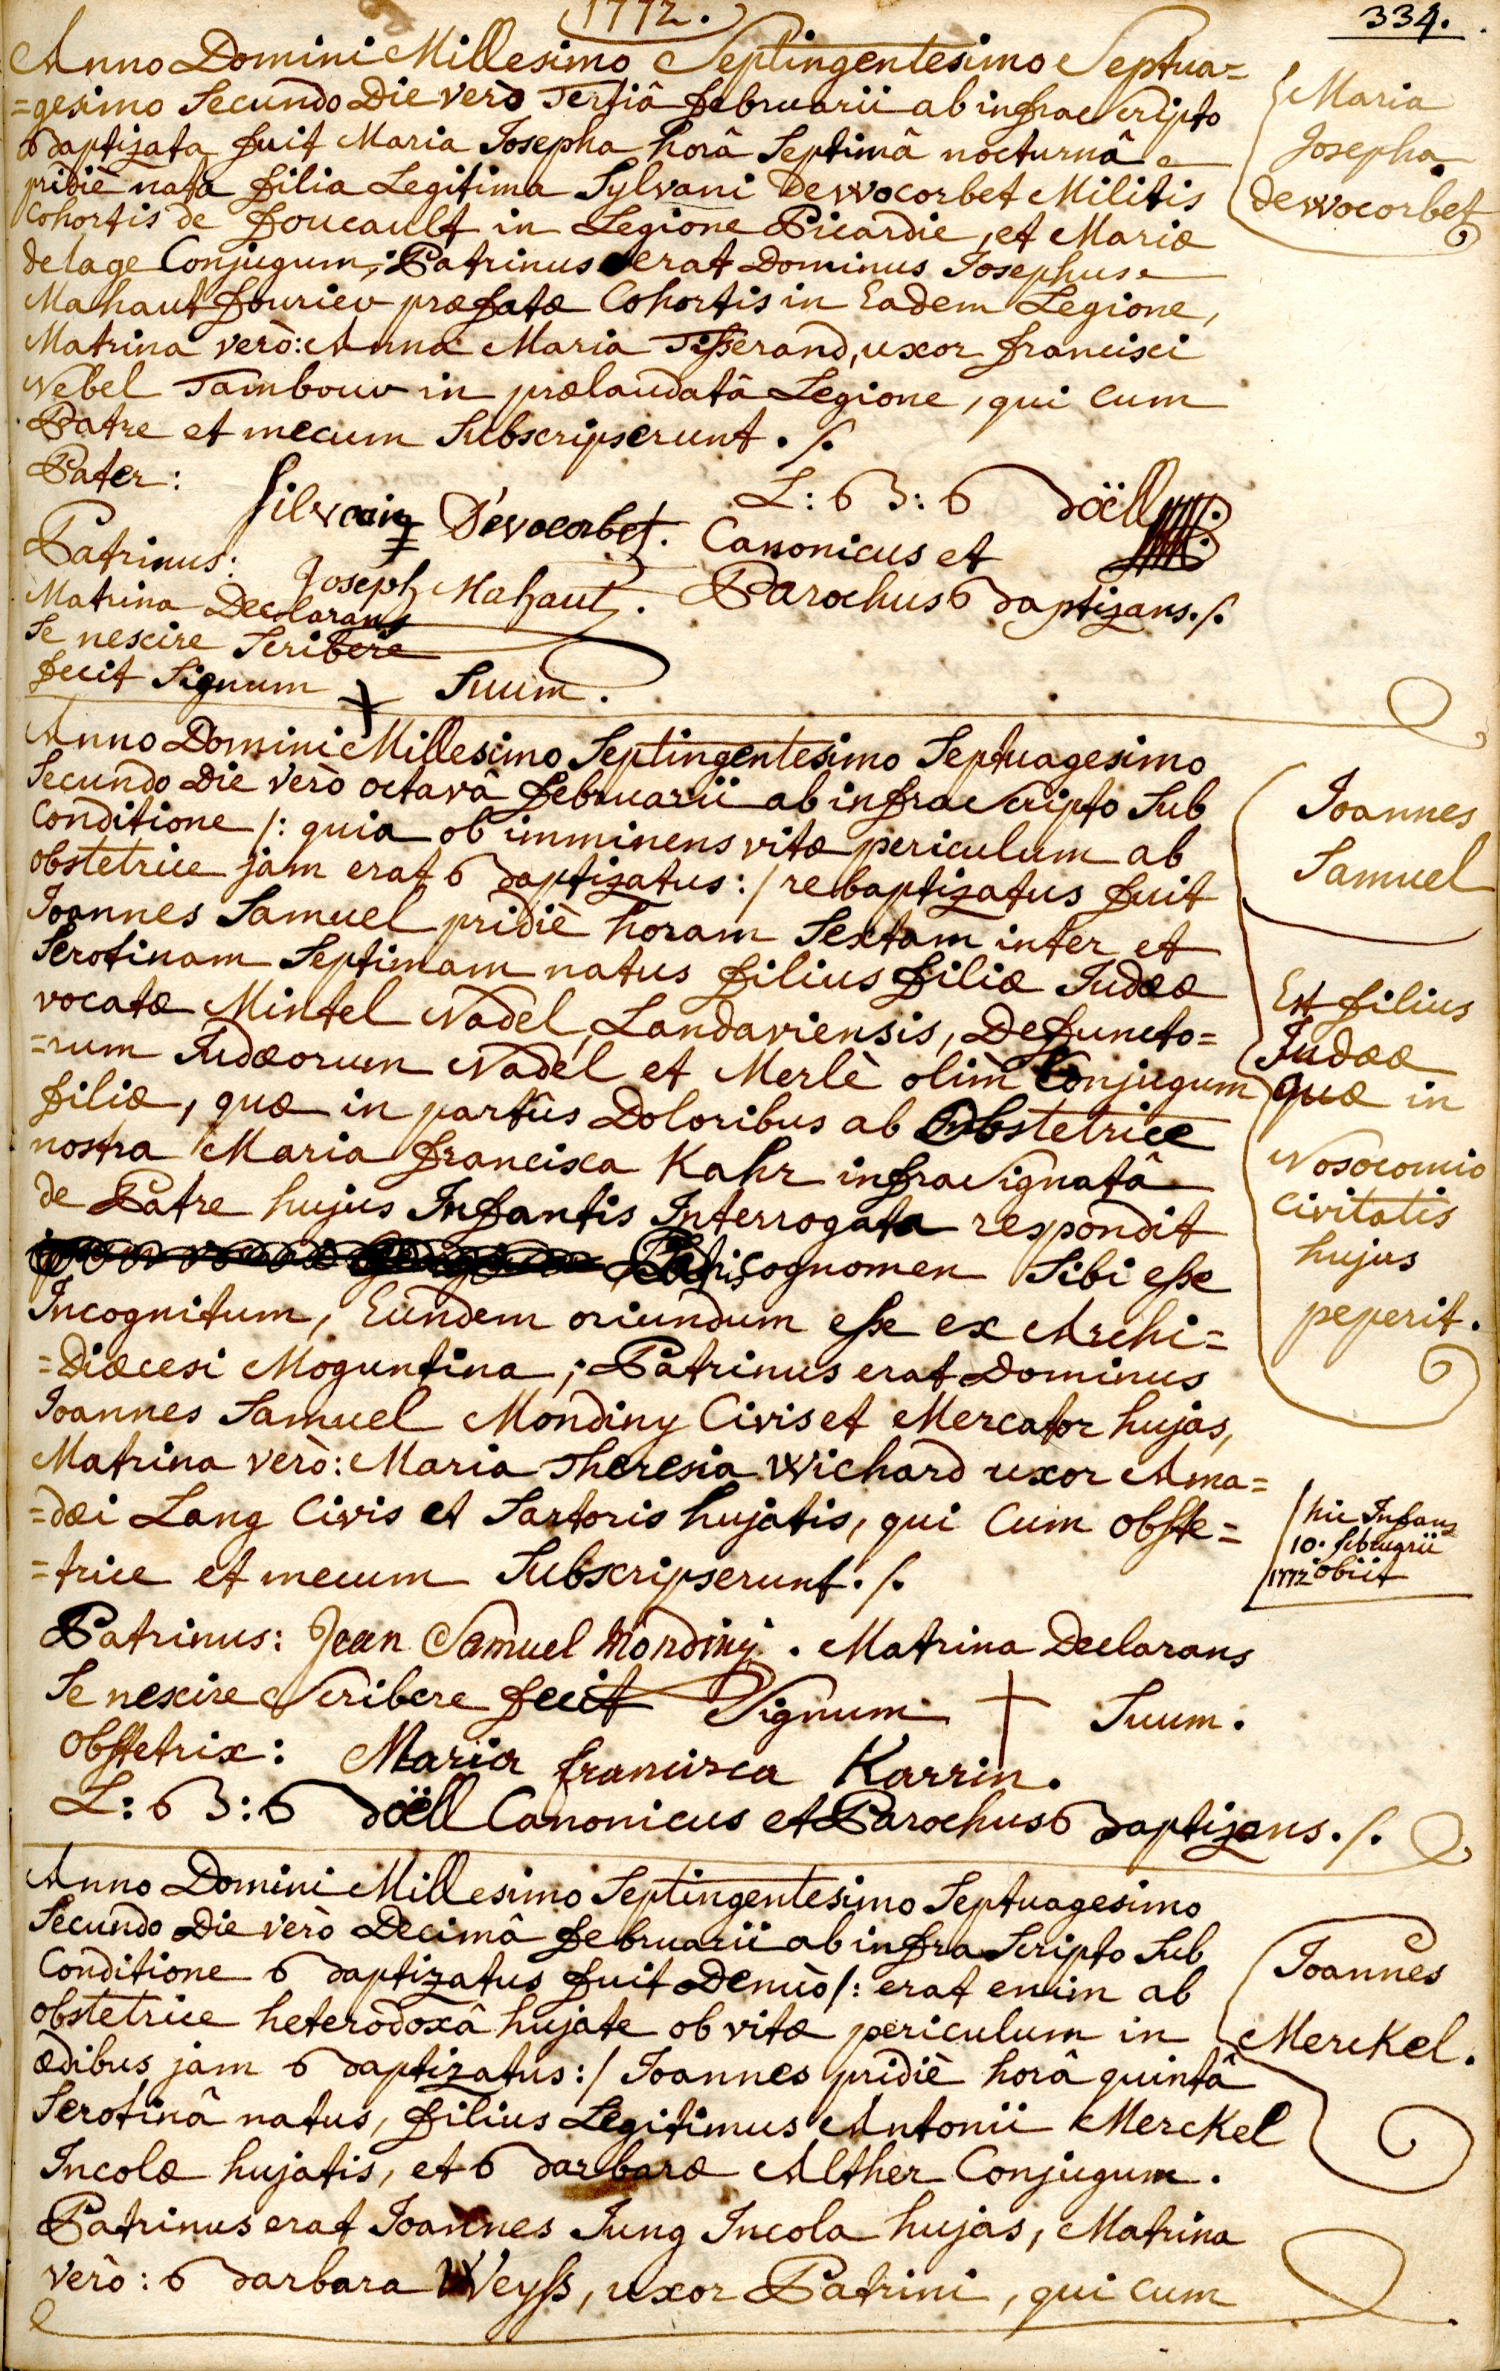 1772.
334.
Anno Domini Millesimo Septingentesimo Septua=
=gesimo Secundo Die verò Tertiâ februarii ab infra Scripto
Baptizata fuit Maria Josepha horâ Septimâ nocturnâ
pridiè nata filia Legitima Sylvani Dewocorbet Militis
Cohortis de foucault in Legione Picardie, et Mariæ
delage Conjugum; Patrinus erat Dominus Josephus
Mahaut fourier præfatæ Cohortis in Eadem Legione,
Matrina verò: Anna Maria Tisserand, uxor francisci
Nebel Tambour in prælaudatâ Legione, qui Cum
Patre et mecum Subscripserunt ./.
Maria
Josepha
Dewocorbet
Pater: Silvain Devocorbet.
Patrinus: Joseph Mahaut.
Matrina Declarans
Se nescire Scribere
fecit Signum + Suum.
L: B: Boëll
Canonicus et
Parochus Baptizans ./.
Anno Domini Millesimo Septingentesimo Septuagesimo
Secundo Die verò octavâ februarii ab infra Scripto Sub
Conditione /: quia ob imminens vitæ periculum ab
obstetrice jam erat Baptizatus :/ rebaptizatus fuit
Joannes Samuel pridiè horam Sextam inter et
Serotinam Septimam natus filius filiæ Judææ
vocatæ Mintel Nadel, Landaviensis, Defuncto=
=rum Judæorum Nadel et Merlè olim Conjugum
filiæ, quæ in partûs Doloribus ab Obstetrice
nostra Maria francisca Kahr infra Signatâ
de Patre hujus Infantis Interrogata respondit
Patris cognomen Sibi esse
Incognitum, Eundem oriundum esse ex Archi=
=Diæcesi Moguntina; Patrinus erat Dominus
Joannes Samuel Mondiny Civis et Mercator hujas,
Matrina verò: Maria Theresia Wichard uxor Ama=
=dæi Lang Civis et Sartoris hujatis, qui Cum obste=
=trice et mecum Subscripserunt ./.
Joannes
Samuel
Est filius
Judææ
quæ in
Nosocomio
Civitatis
hujus
peperit.
hic Infans
10. februarii
1772 obiit
Patrinus: Jean Samuel Mondiny. Matrina Declarans
Se nescire Scribere fecit Signum + Suum.
Obstetrix: Maria francisca Karrin.
L: B: Boëll Canonicus et Parochus Baptizans ./.
Anno Domini Millesimo Septingentesimo Septuagesimo
Secundo Die verò Decimâ februarii ab infra Scripto Sub
Conditione Baptizatus fuit Denuò /: erat enim ab
obstetrice heterodoxâ hujate ob vitæ periculum in
ædibus jam Baptizatus :/ Joannes pridiè horâ quintâ
Serotinâ natus, filius Legitimus Antonii Merckel
Incolæ hujatis, et Barbaræ Alther Conjugum.
Patrinus erat Joannes Jung Incola hujas, Matrina
verò: Barbara Weyss, uxor Patrini, qui cum
Joannes
Merckel.